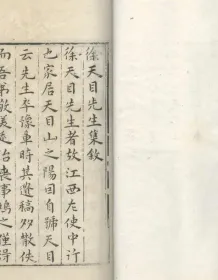 徐天目先生集敘
徐天目先生者故江西左使中行
也家居天目山之陽因自號天目
云先生卒豫章時其遺稿多散佚
而吾弟敬美適治喪事鳩之僅得